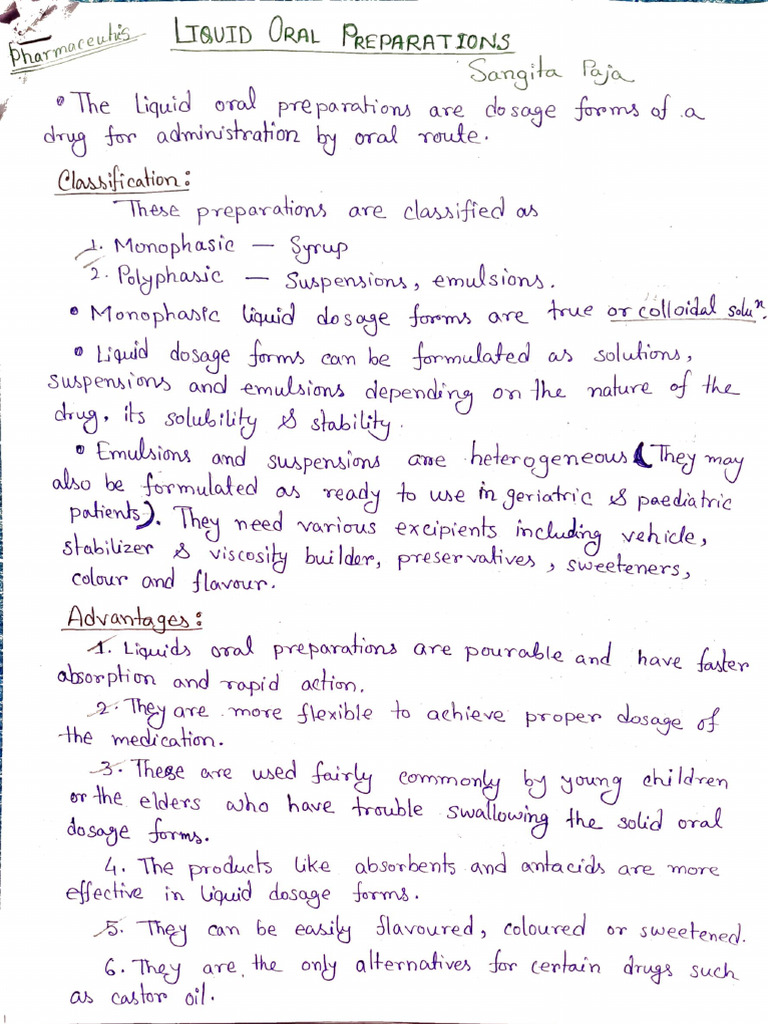 Pharmaceutis
LIQUID ORAL PREPARATIONS
Sangita Paja
• The liquid oral preparations are dosage forms of a
drug for administration by oral route.
Classification:
These preparations are classified as
1. Monophasic — Syrup
2. Polyphasic — Suspensions, emulsions.
• Monophasic liquid dosage forms are true or colloidal soluⁿ.
• Liquid dosage forms can be formulated as solutions,
suspensions and emulsions depending on the nature of the
drug, its solubility & stability.
• Emulsions and suspensions are heterogeneous (They may
also be formulated as ready to use in geriatric & paediatric
patients). They need various excipients including vehicle,
stabilizer & viscosity builder, preservatives, sweeteners,
colour and flavour.
Advantages:
1. Liquids oral preparations are pourable and have faster
absorption and rapid action.
2. They are more flexible to achieve proper dosage of
the medication.
3. These are used fairly commonly by young children
or the elders who have trouble swallowing the solid oral
dosage forms.
4. The products like absorbents and antacids are more
effective in liquid dosage forms.
5. They can be easily flavoured, coloured or sweetened.
6. They are the only alternatives for certain drugs such
as castor oil.